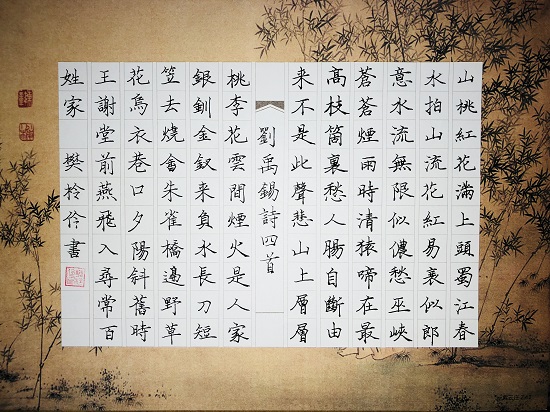 山桃紅花滿上頭蜀江春
水拍山流花紅易衰似郎
意水流無限似儂愁巫峽
蒼蒼煙雨時清猿啼在最
高枝箇裏愁人腸自斷由
来不是此聲悲山上層層
劉禹錫詩四首
桃李花雲間煙火是人家
銀釧金釵来負水長刀短
笠去燒畬朱雀橋邊野草
花烏衣巷口夕陽斜舊時
王謝堂前燕飛入尋常百
姓家 樊柃伶書